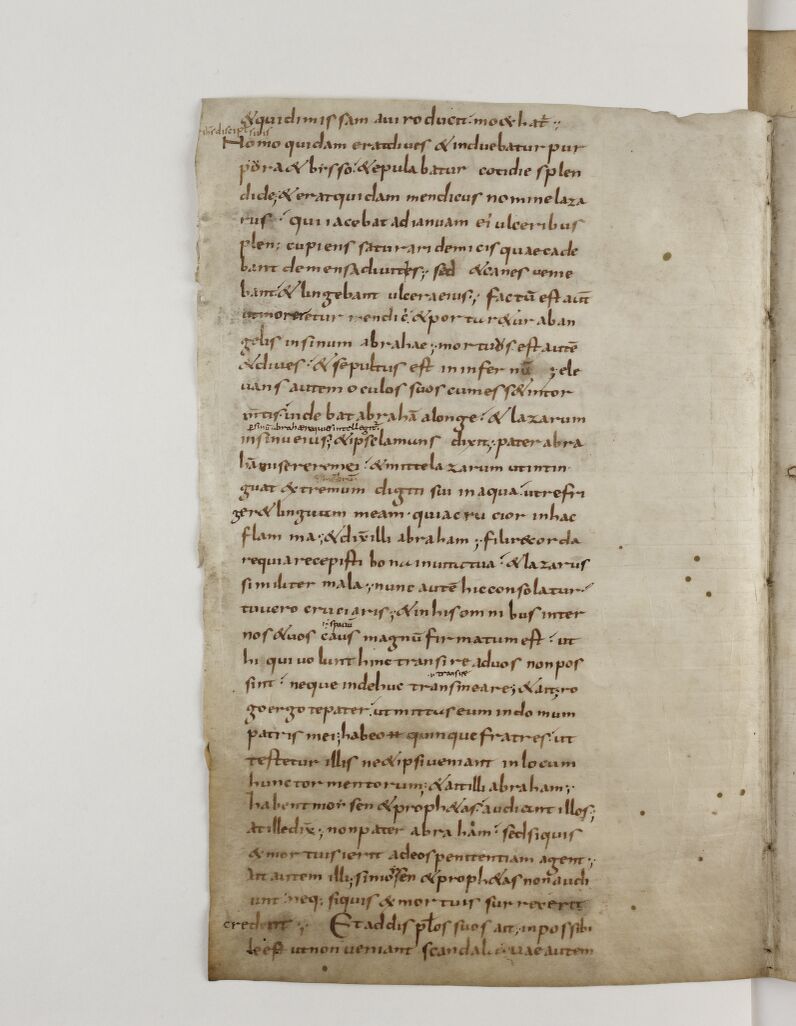 & qui dimissam a uiro ducit. moechat̄ :;
Homo quidam erat diues & induebatur pur
pora & bisso. & epulabatur cotidie splen
dide; & erat quidam mendicus nomine laza
rus : qui iacebat ad ianuam ei' ulceribus
plen; cupiens saturari de micis quae cade
bant de mensa diuitis; sed & canes uenie
bant & lingebant ulcera eius; factū est aut̄
ut moreretur mendic' & portur&ur ab an
gelis in sinum abrahae; mortuus est autē
& diues : & sepultus est in infernū ; ele
uans autem oculos suos cum ess& in tor
mtis. uidebat abrahā a longe : & lazarum
in sinu eius; & ipse clamans dixit; pater abra
hā miserere mei : & mitte lazarum ut intin
guat extremum digiti sui in aqua. ut refri
ger& linguam meam. quia crucior in hac
flamma; & dix̄ illi abraham ; fili recorda
re quia recepisti bona in uita tua : & lazarus
similiter mala; nunc autē hic consolatur.
tu uero cruciaris; & in his omnibus inter
i. spaciū
nos & uos caus magnū firmatum est : ut
hi qui uolunt hinc transire ad uos non pos
transire
sint : neque inde huc transmeare; & ait; ro
go ergo te pater. ut mittas eum in domum
patris mei; habeo quinque fratres. ut
testetur illis ne & ipsi ueniant in locum
hunc tormentorum; & ait illi abraham;
habent moysen & proph&as. audiant illos;
at ille dix̄; non pater abraham : sed si quis
ex mortuis ierit ad eos penitentiam agent;
Ait autem illi; si moysen & proph&as non audi
unt. neq; si quis ex mortuis surrexerit
credent :; Et ad discip̄los suos ait. inpossibi
le est ut non ueniant scandala. uae autem